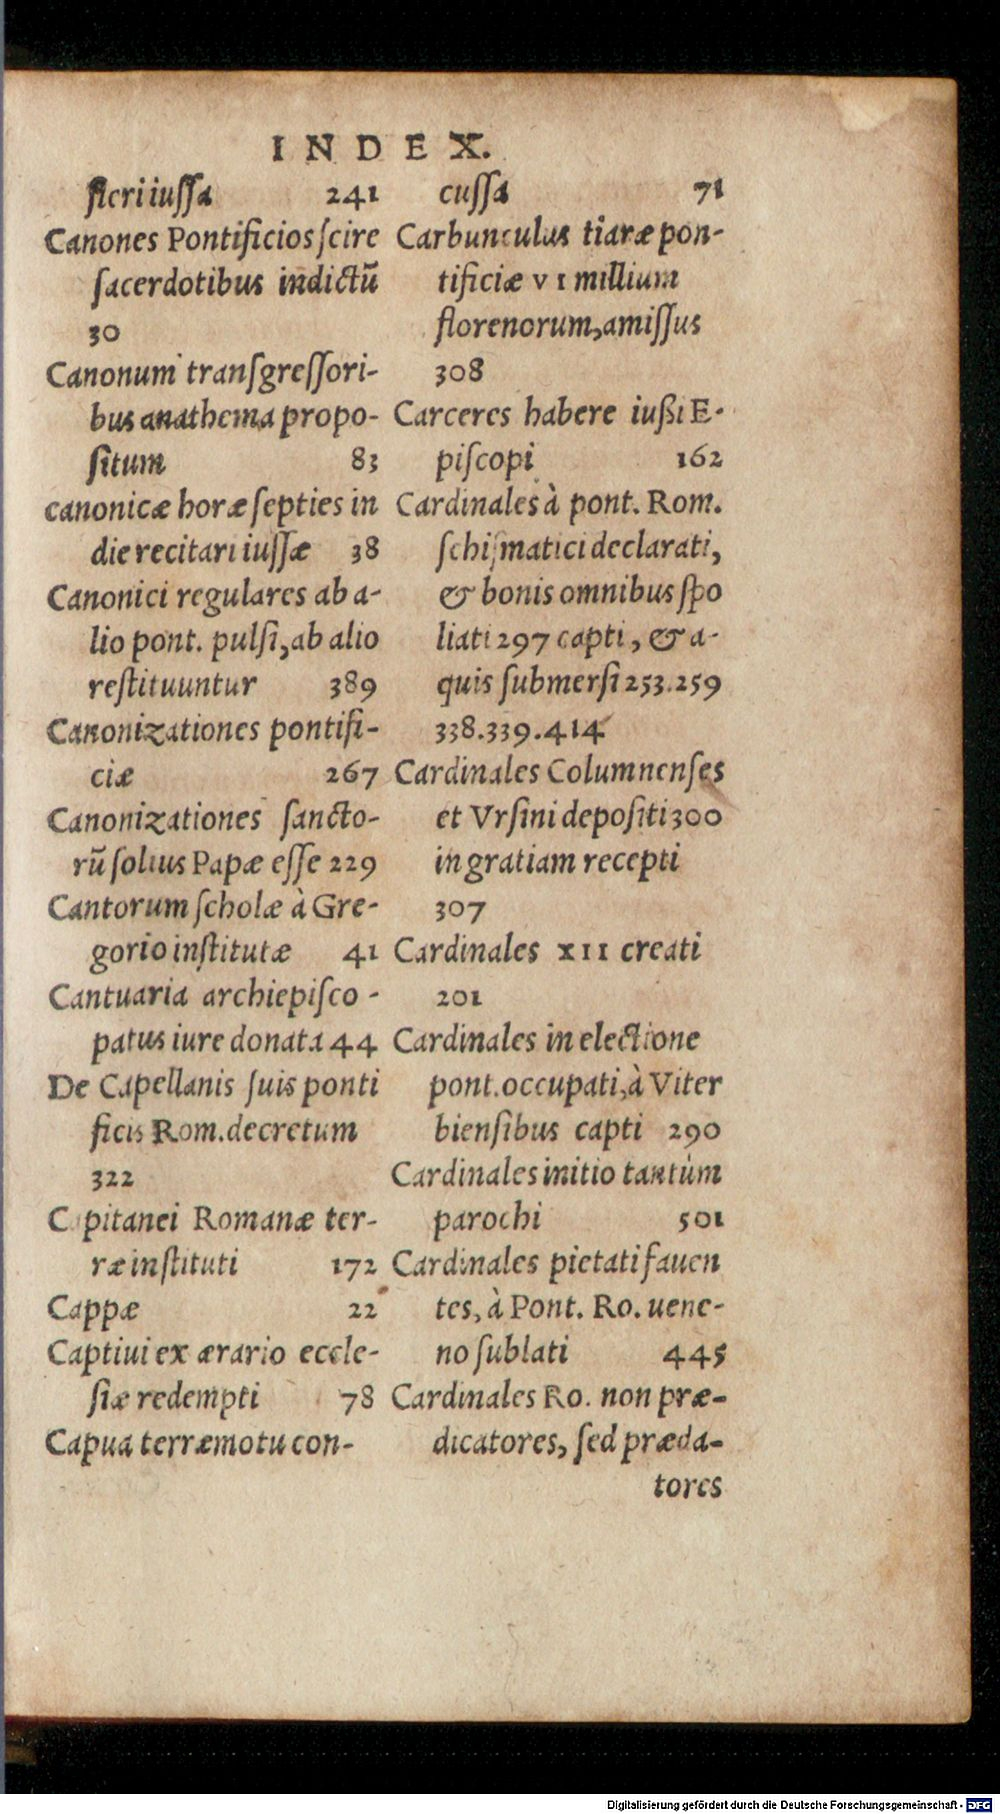 INDEX.
fieri iussa 241
Canones Pontificios scire
sacerdotibus indictū
30
Canonum transgressori-
bus anathema propo-
situm 83
canonicæ horæ septies in
die recitari iussæ 38
Canonici regulares ab a-
lio pont. pulsi, ab alio
restituuntur 389
Canonizationes pontifi-
ciæ 267
Canonizationes sancto-
rū solius Papæ esse 229
Cantorum scholæ à Gre-
gorio institutæ 41
Cantuaria archiepisco-
patus iure donata 44
De Capellanis suis ponti
ficis Rom. decretum
322
Capitanei Romanæ ter-
ræ instituti 172
Cappæ 22
Captiui ex ærario eccle-
siæ redempti 78
Capua terræmotu con-
cussa 71
Carbunculus tiaræ pon-
tificiæ VI millium
florenorum, amissus
308
Carceres habere iußi E-
piscopi 162
Cardinales à pont. Rom.
schismatici declarati,
& bonis omnibus spo
liati 297 capti, & a-
quis submersi 253.259
338.339.414
Cardinales Columnenses
et Vrsini depositi 300
in gratiam recepti
307
Cardinales XII creati
201
Cardinales in electione
pont. occupati, à Viter
biensibus capti 290
Cardinales initio tantùm
parochi 501
Cardinales pietati fauen
tes, à Pont. Ro. uene-
no sublati 445
Cardinales Ro. non præ-
dicatores, sed præda-
tores
Digitalisierung gefördert durch die Deutsche Forschungsgemeinschaft - DFG